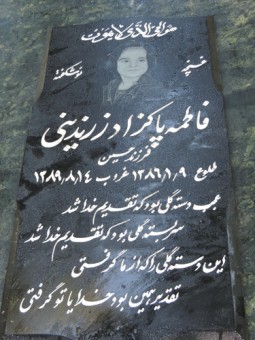 هوالحی الذی لا یموت
غنچه نوشکفته
فاطمه پاکزاد زردینی
فرزند حسین
طلوع ۱۳۸۶/۱/۹ غروب ۱۳۸۹/۸/۱۴
عجب دسته گلی بود که تقدیم خدا شد
سربسته گلی بود که تقدیم خدا شد
این دسته گلی را که از ما گرفتی
تقدیر چنین بود خدایا تو گرفتی